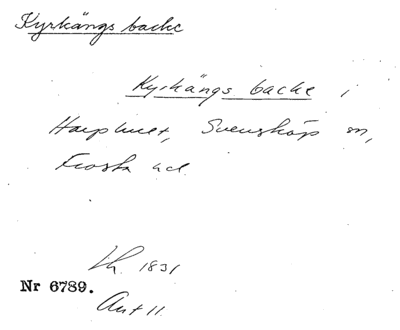 Kyrkängs backe
Kyrkängs backe i
Harphult, Svensköp sn,
Frosta hd.
Lh. 1831
Nr 6789.
Ant 11.